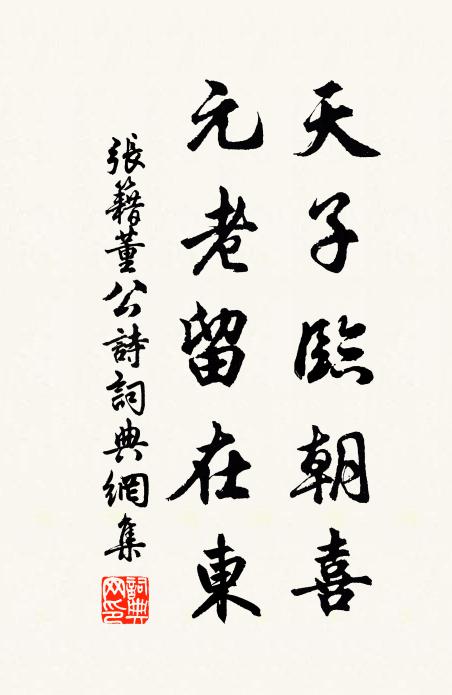 天子臨朝喜
元老留在東
張籍董公詩詞典網集
詞典网印